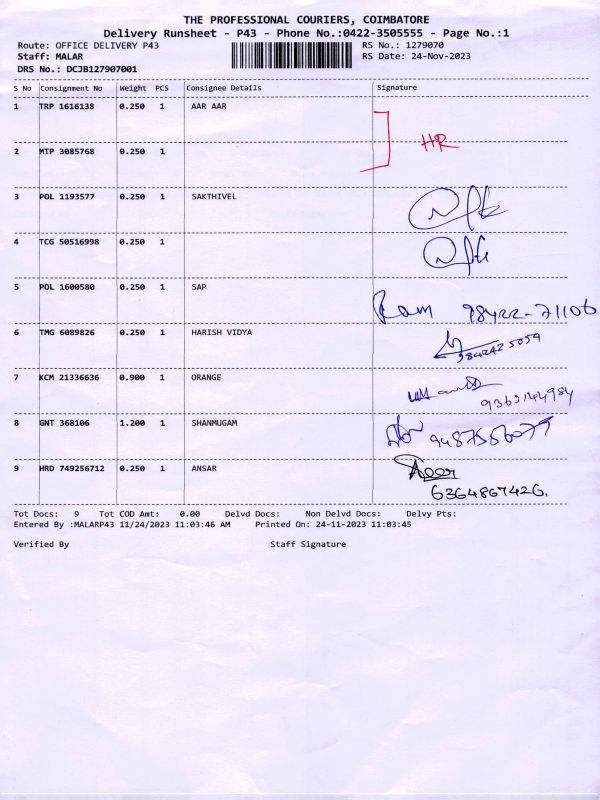 THE PROFESSIONAL COURIERS, COIMBATORE
Delivery Runsheet - P43 - Phone No.:0422-3505555 - Page No.:1
Route: OFFICE DELIVERY P43 RS No.: 1279070
Staff: MALAR RS Date: 24-Nov-2023
DRS No.: DCJB127907001
S No Consignment No Weight PCS Consignee Details Signature
1 TRP 1616138 0.250 1 AAR AAR
HR
2 MTP 3085768 0.250 1
3 POL 1193577 0.250 1 SAKTHIVEL
4 TCG 50516998 0.250 1
5 POL 1600580 0.250 1 SAP
Ram 98422-71106
6 TMG 6089826 0.250 1 HARISH VIDYA
9842425059
7 KCM 21336636 0.900 1 ORANGE
9363144984
8 GNT 368106 1.200 1 SHANMUGAM
9487556079
9 HRD 749256712 0.250 1 ANSAR
6364867426.
Tot Docs: 9 Tot COD Amt: 0.00 Delvd Docs: Non Delvd Docs: Delvy Pts:
Entered By :MALARP43 11/24/2023 11:03:46 AM Printed On: 24-11-2023 11:03:45
Verified By Staff Signature